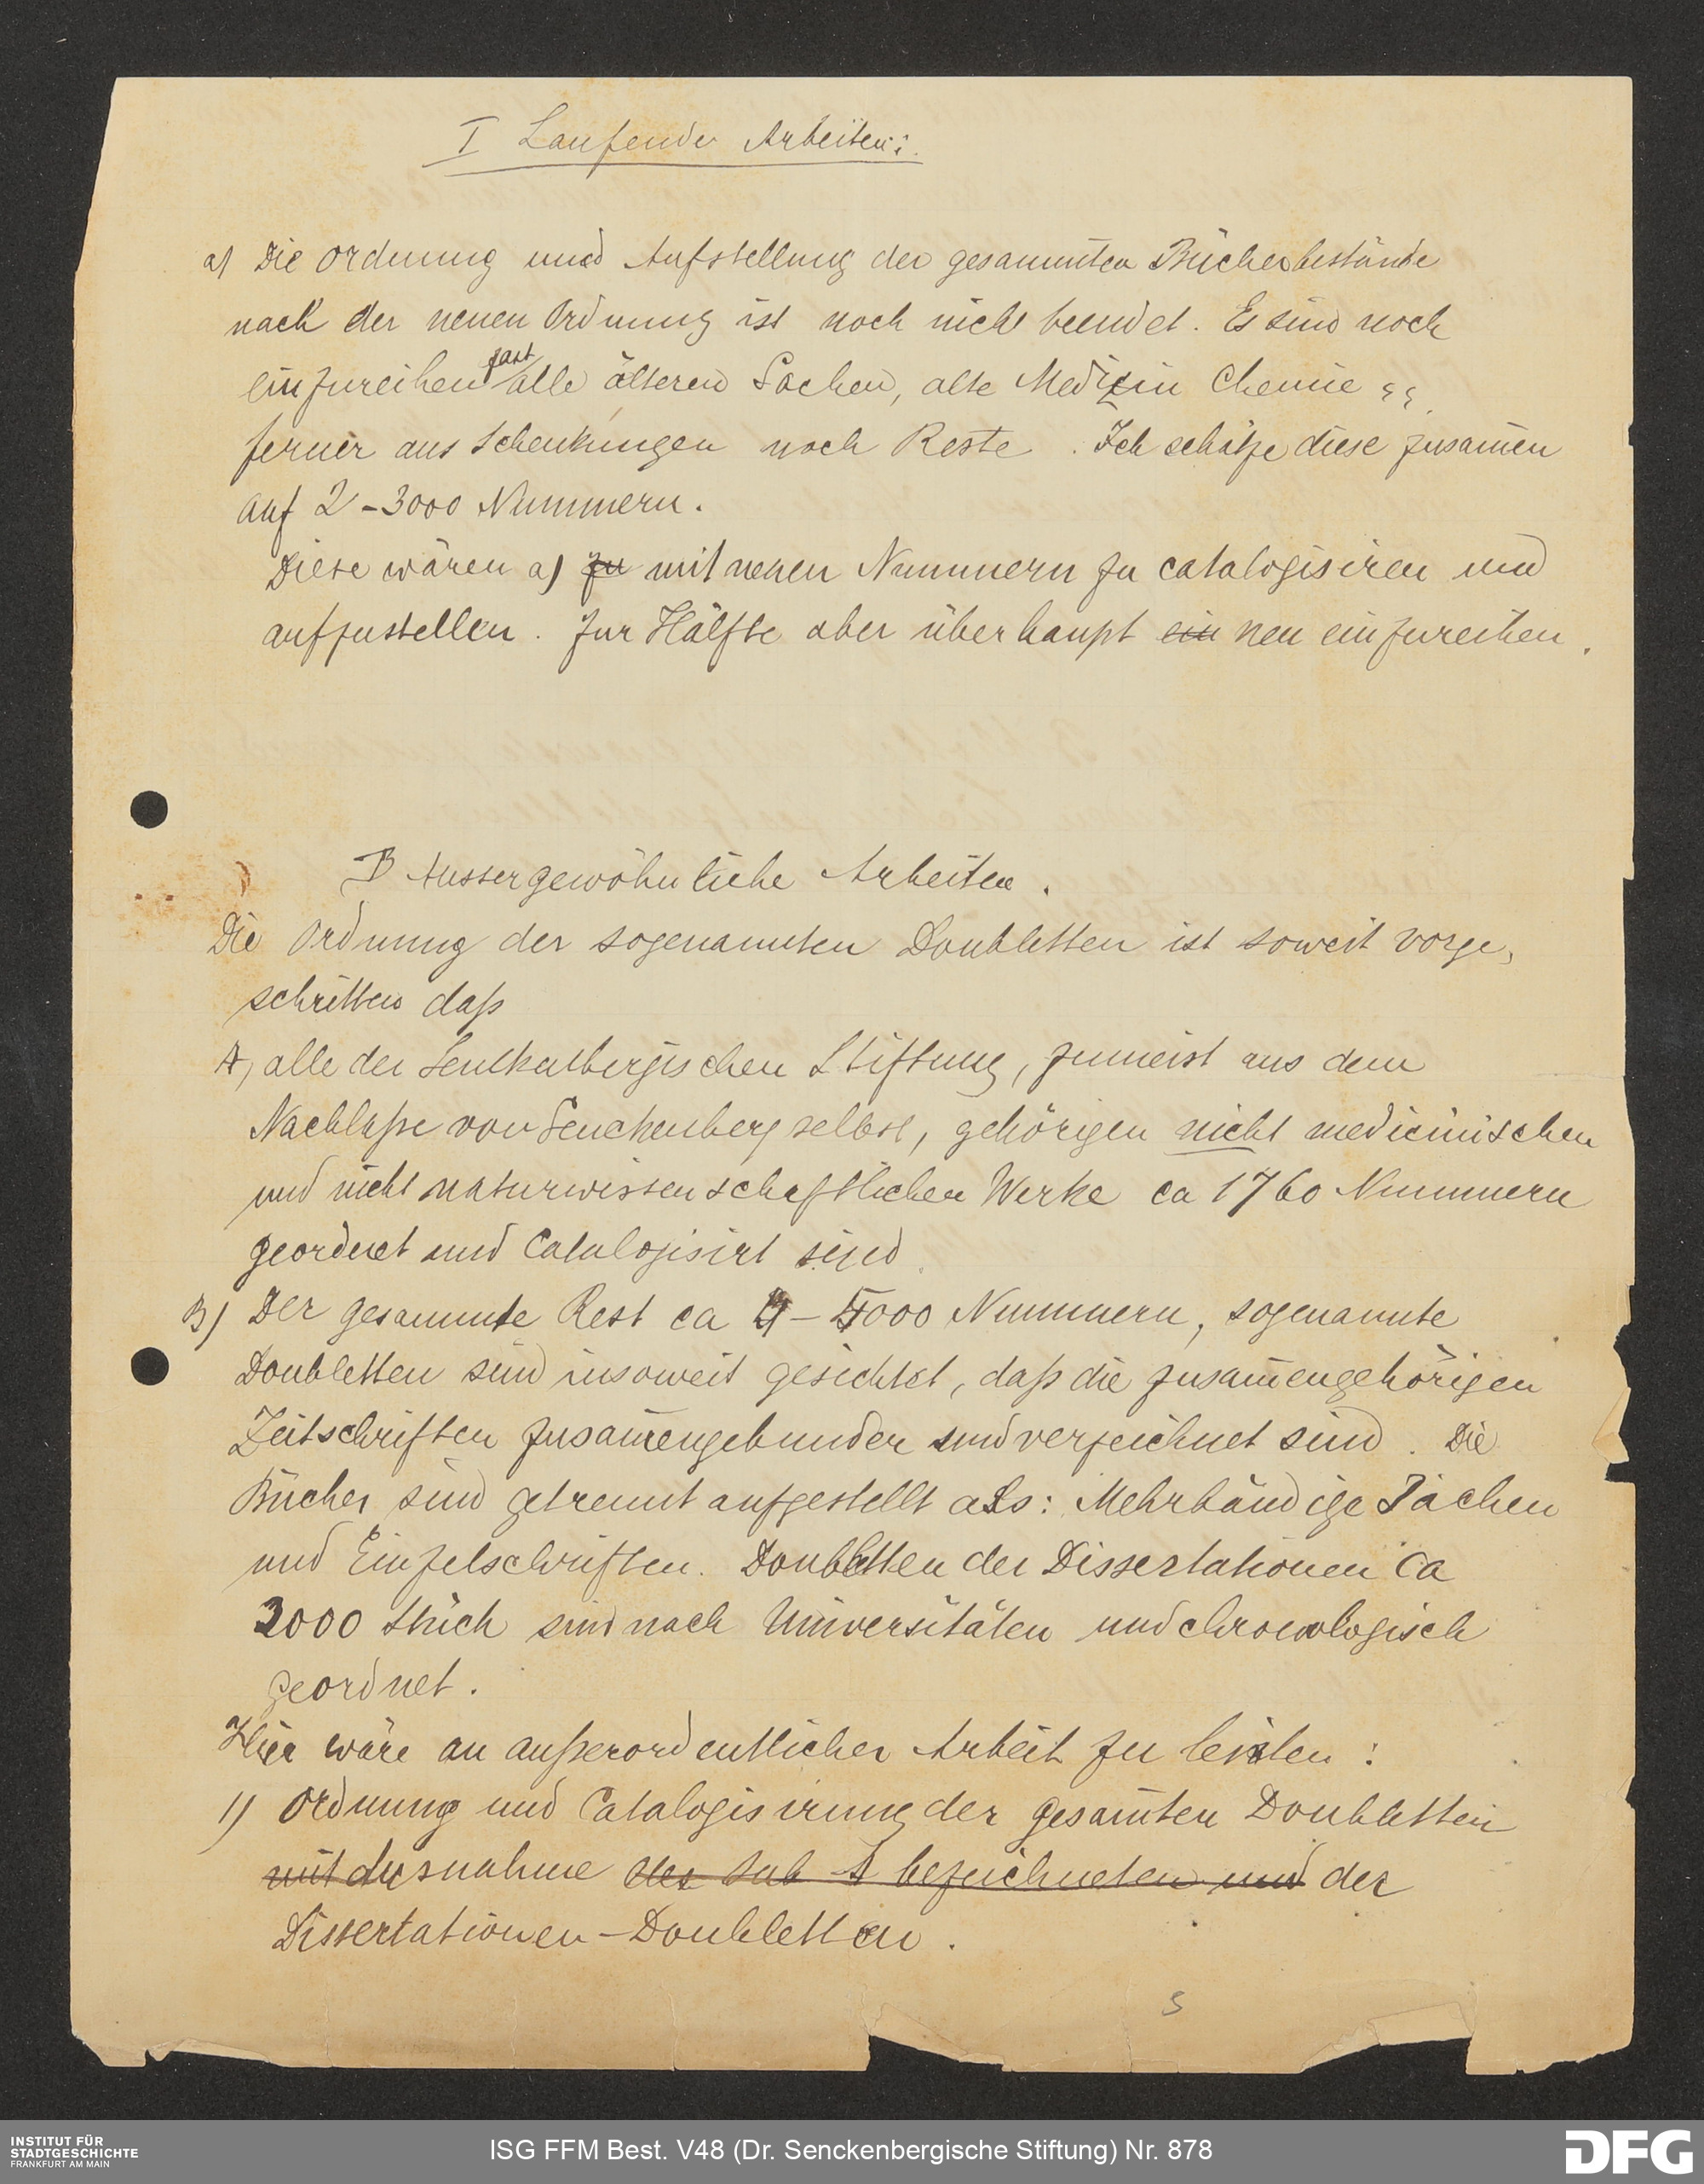 I Laufende Arbeiten:
a) Die Ordnung und Aufstellung der gesammten Bücherbestände
nach der neuen Ordnung ist noch nicht beendet. Es sind noch
einzureihen fast alle älteren Sachen, alte Medizin Chemie
ferner aus Schenkungen noch Reste. Ich schätze diese zusam̅en
auf 2-3000 Nummern.
Diese wären a) zu mit neuen Nummern zu catalogisiren und
aufzustellen. Zur Hälfte aber überhaupt ein neu einzureihen.
B Aussergewöhnliche Arbeiten.
Die Ordnung der sogenannten Doubletten ist soweit vorge,
schritten daß
A, alle der Senckenbergischen Stiftung, zumeist aus dem
Nachlaße von Senckenberg selbst, gehörigen nicht medicinischen
und nicht naturwissenschaftlichen Werke ca 1760 Nummern
geordnet und Catalogisirt sind.
B) Der gesammte Rest ca 4-5000 Nummern, sogenannte
Doubletten sind insoweit gesichtet, daß die zusam̅engehörigen
Zeitschriften zusam̅engebunden und verzeichnet sind. Die
Bücher sind getrennt aufgestellt als: Mehrbändige Sachen
und Einzelschriften. Doubletten der Dissertationen ca
3000 Stück sind nach Universitäten und chronologisch
geordnet.
Hier wäre an außerordentlicher Arbeit zu leisten:
1) Ordnung und Catalogisirung der gesam̅ten Doubletten
mit Ausnahme der sub A bezeichneten und der
Dissertationen-Doubletten.
5
INSTITUT FÜR
STADTGESCHICHTE
FRANKFURT AM MAIN
ISG FFM Best. V48 (Dr. Senckenbergische Stiftung) Nr. 878
DFG